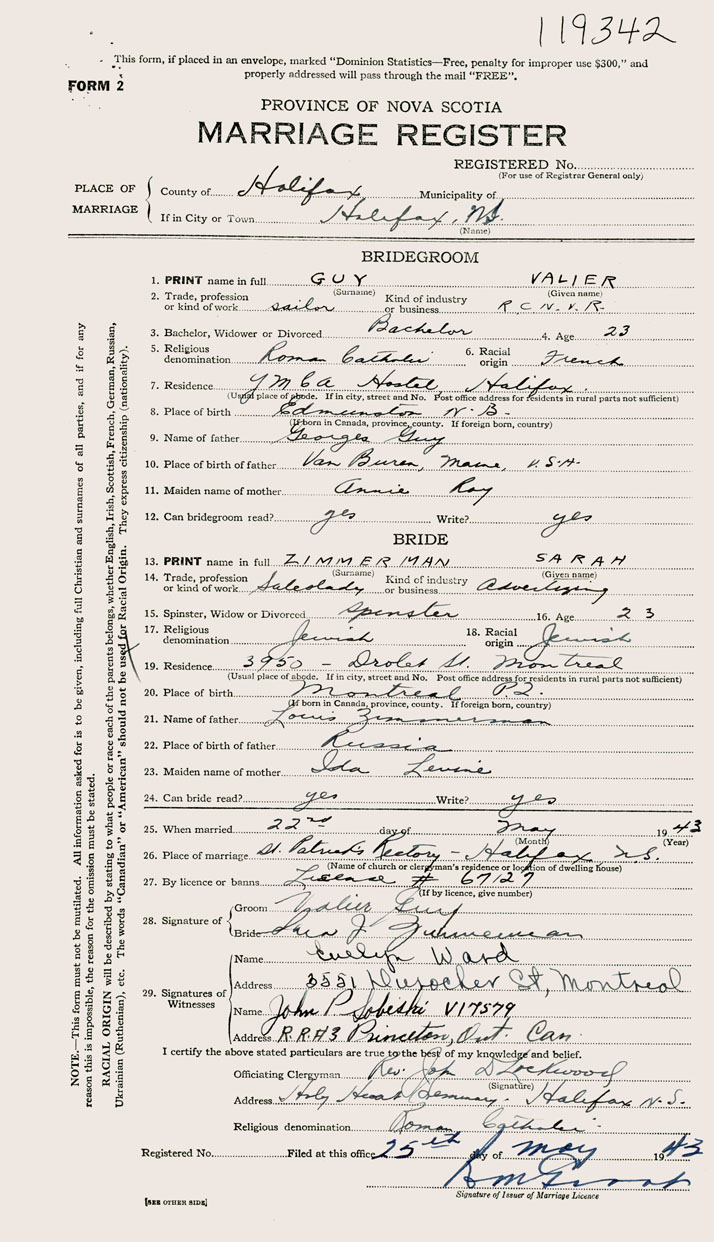 119342
This form, if placed in an envelope, marked "Dominion Statistics—Free, penalty for improper use $300," and
properly addressed will pass through the mail "FREE".
FORM 2
PROVINCE OF NOVA SCOTIA
MARRIAGE REGISTER
REGISTERED No.
(For use of Registrar General only)
PLACE OF MARRIAGE
County of Halifax Municipality of
If in City or Town Halifax, N.S.
(Name)
BRIDEGROOM
1. PRINT name in full GUY VALIER
(Surname) (Given name)
2. Trade, profession or kind of work sailor Kind of industry or business R.C.N.V.R.
3. Bachelor, Widower or Divorced Bachelor 4. Age 23
5. Religious denomination Roman Catholic 6. Racial origin French
7. Residence YMCA Hostel, Halifax.
(Usual place of abode. If in city, street and No. Post office address for residents in rural parts not sufficient)
8. Place of birth Edmunston N.B.
(If born in Canada, province, county. If foreign born, country)
9. Name of father Georges Guy
10. Place of birth of father Van Buren, Maine, U.S.A.
11. Maiden name of mother Annie Roy
12. Can bridegroom read? yes Write? yes
BRIDE
13. PRINT name in full ZIMMERMAN SARAH
(Surname) (Given name)
14. Trade, profession or kind of work Saleslady Kind of industry or business Advertizing
15. Spinster, Widow or Divorced spinster 16. Age 23
17. Religious denomination Jewish 18. Racial origin Jewish
19. Residence 3950 - Drolet St. Montreal
(Usual place of abode. If in city, street and No. Post office address for residents in rural parts not sufficient)
20. Place of birth Montreal P.Q.
(If born in Canada, province, county. If foreign born, country)
21. Name of father Louis Zimmerman
22. Place of birth of father Russia
23. Maiden name of mother Ida Levine
24. Can bride read? yes Write? yes
25. When married 22nd day of May 1943
(Month) (Year)
26. Place of marriage St. Patrick's Rectory - Halifax N.S.
(Name of church or clergyman's residence or location of dwelling house)
27. By licence or banns License # 67127
(If by licence, give number)
28. Signature of
Groom Valier Guy
Bride Sara J. Zimmerman
29. Signatures of Witnesses
Name Evelyn Ward
Address 3551 Durocher St, Montreal
Name John P Sobeski V17579
Address R.R#3 Princeton, Ont. Can.
I certify the above stated particulars are true to the best of my knowledge and belief.
Officiating Clergyman Rev. John D Lockwood
(Signature)
Address Holy Heart Seminary. Halifax N.S.
Religious denomination Roman Catholic
Registered No. Filed at this office 25th day of May 1943
Signature of Issuer of Marriage Licence
[SEE OTHER SIDE]
NOTE.—This form must not be mutilated. All information asked for is to be given, including full Christian and surnames of all parties, and if for any
reason this is impossible, the reason for the omission must be stated.
RACIAL ORIGIN will be described by stating to what people or race each of the parents belongs, whether English, Irish, Scottish, French, German, Russian,
Ukrainian (Ruthenian), etc. The words "Canadian" or "American" should not be used for Racial Origin. They express citizenship (nationality).